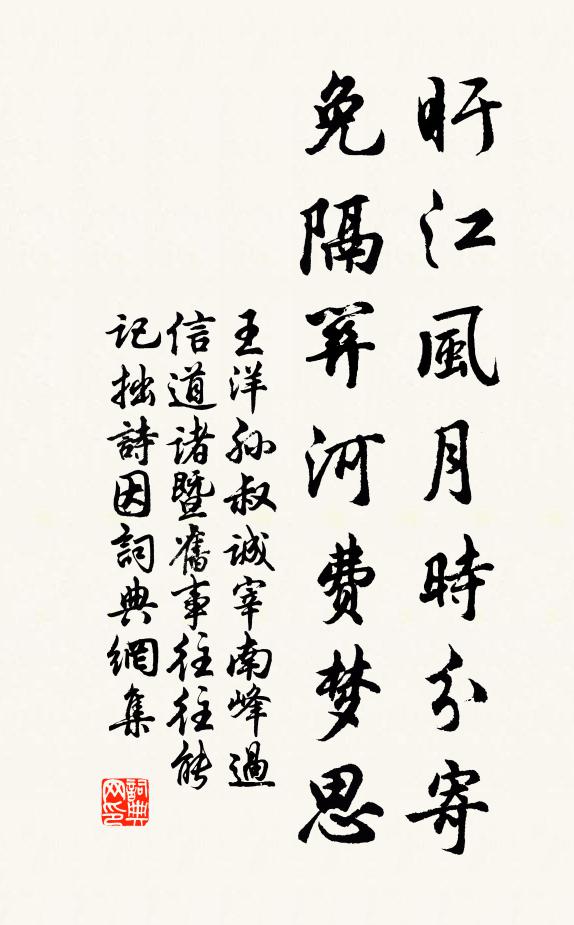 盱江風月時分寄
免隔關河费梦思
王洋孙叔诚宰南峰過
信道诸暨舊事往往能
记拙詩因詞典網集
詞典网印